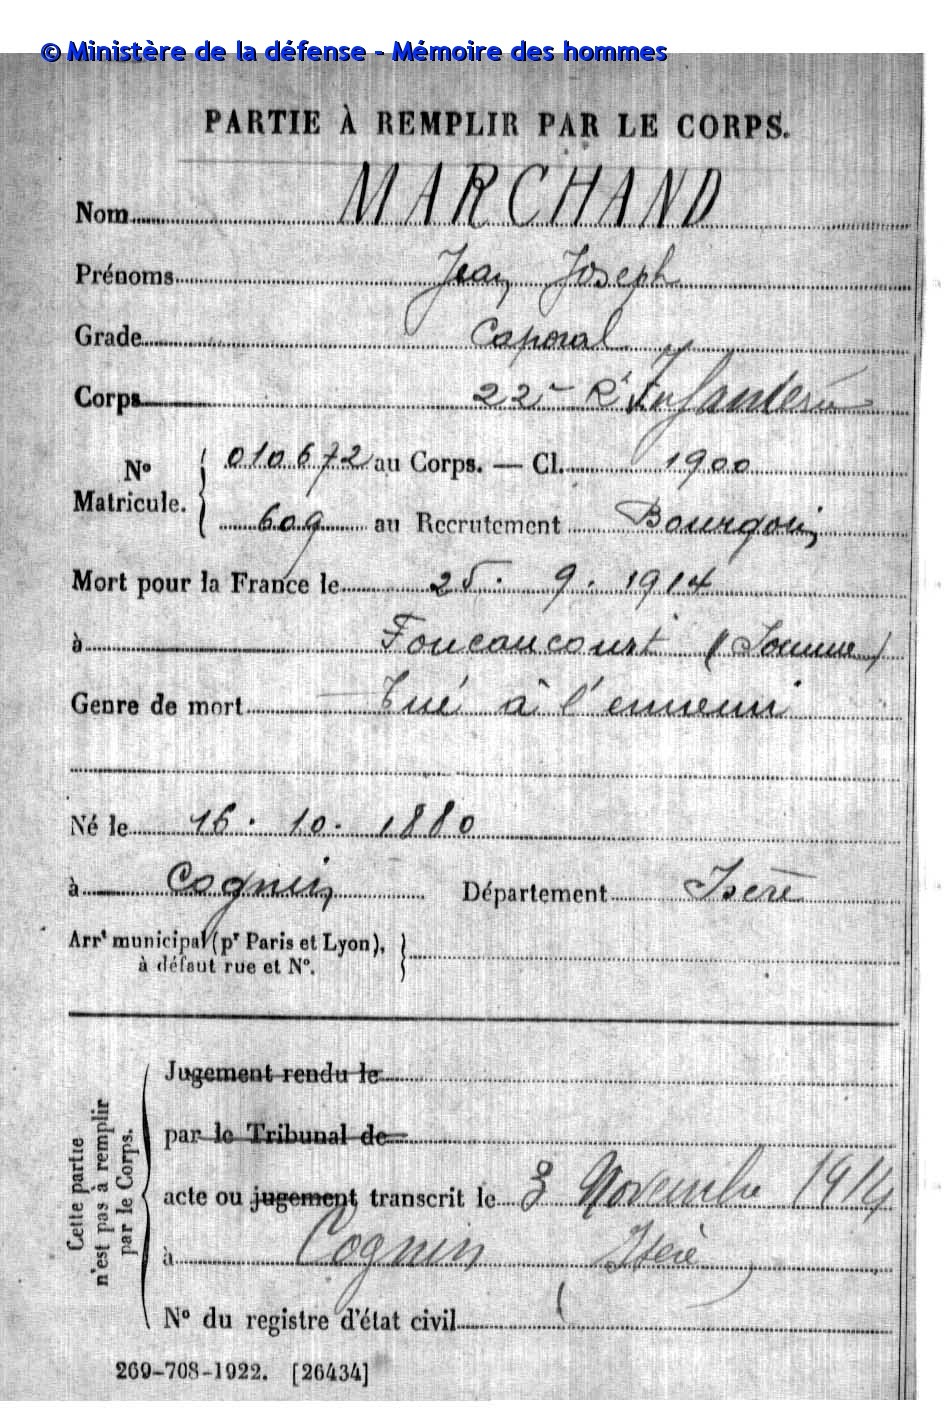 © Ministère de la défense - Mémoire des hommes
PARTIE À REMPLIR PAR LE CORPS.
Nom MARCHAND
Prénoms Jean Joseph
Grade Caporal
Corps 22e Rt Infanterie
No Matricule. 010672 au Corps. — Cl. 1900
609 au Recrutement Bourgoin
Mort pour la France le 25. 9. 1914
à Foucaucourt (Somme)
Genre de mort Tué à l'ennemi
Né le 16. 10. 1880
à Cognin Département Isère
Arrt municipal (pr Paris et Lyon),
à défaut rue et No.
Cette partie
n'est pas à remplir
par le Corps.
Jugement rendu le
par le Tribunal de
acte ou jugement transcrit le 3 Novembre 1914
à Cognin Isère
No du registre d'état civil
269-708-1922. [26434]